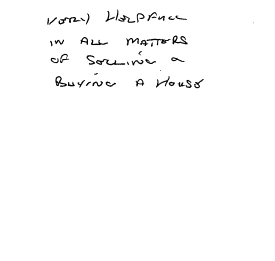 VERY HELPFULL
IN ALL MATTERS
OF SELLING &
BUYING A HOUSE